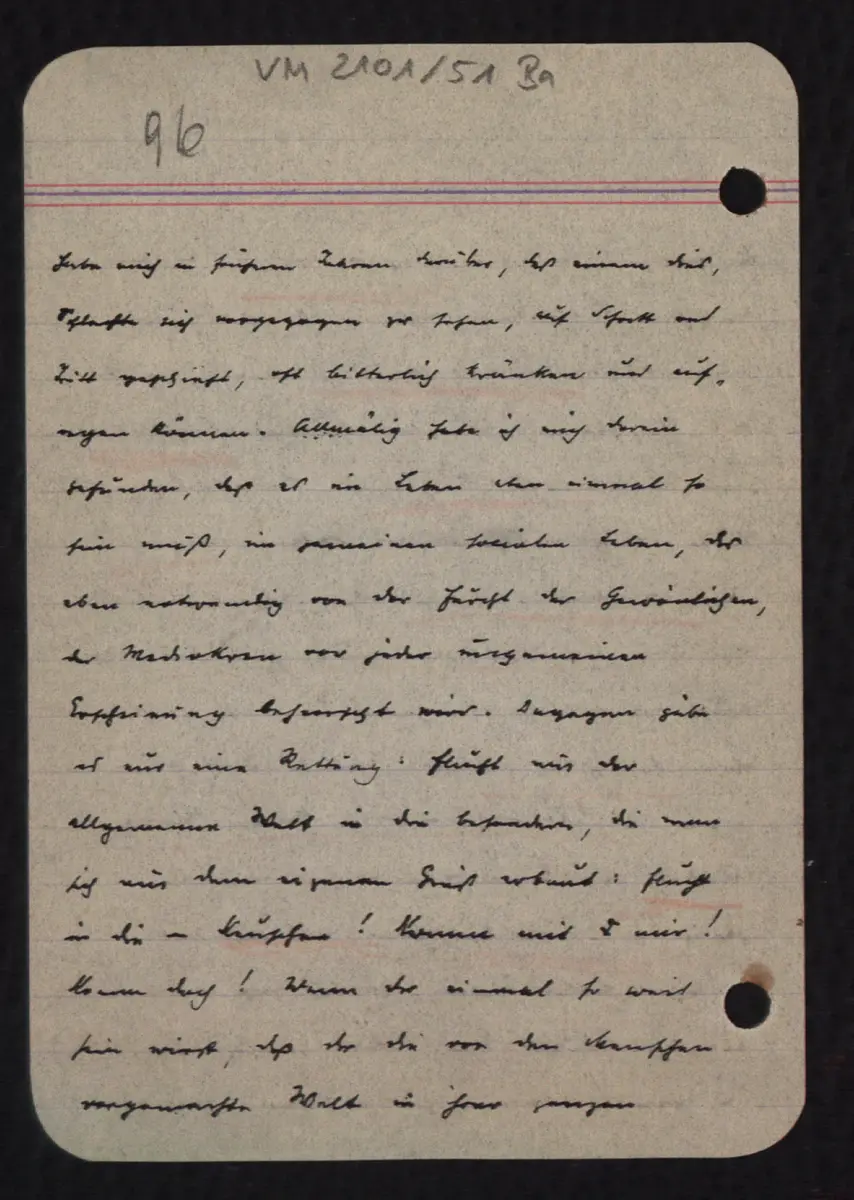 VM 2101/51 Ba
96
habe mich in früheren Jahren darüber, daß einem dies,
Schlechte sich vorgezogen zu sehen, auf Schritt und
Tritt geschieht, oft bitterlich kränken und auf-
regen können. Allmälig habe ich mich darein
gefunden, daß es im Leben eben einmal so
sein muß, im gemeinen socialen Leben, das
eben notwendig von der Furcht der Gewönlichen,
der Mediokren vor jeder ungemeinen
Erscheinung beherrscht wird. Dagegen gäbe
es nur eine Rettung: Flucht aus der
allgemeinen Welt in die besondere, die man
sich aus dem eigenen Geist erbaut: Flucht
in die – Keuschen! Komm mit mir!
Komm doch! Wenn du einmal so weit
sein wirst, daß du die von den Menschen
vorgemachte Welt in ihrer ganzen